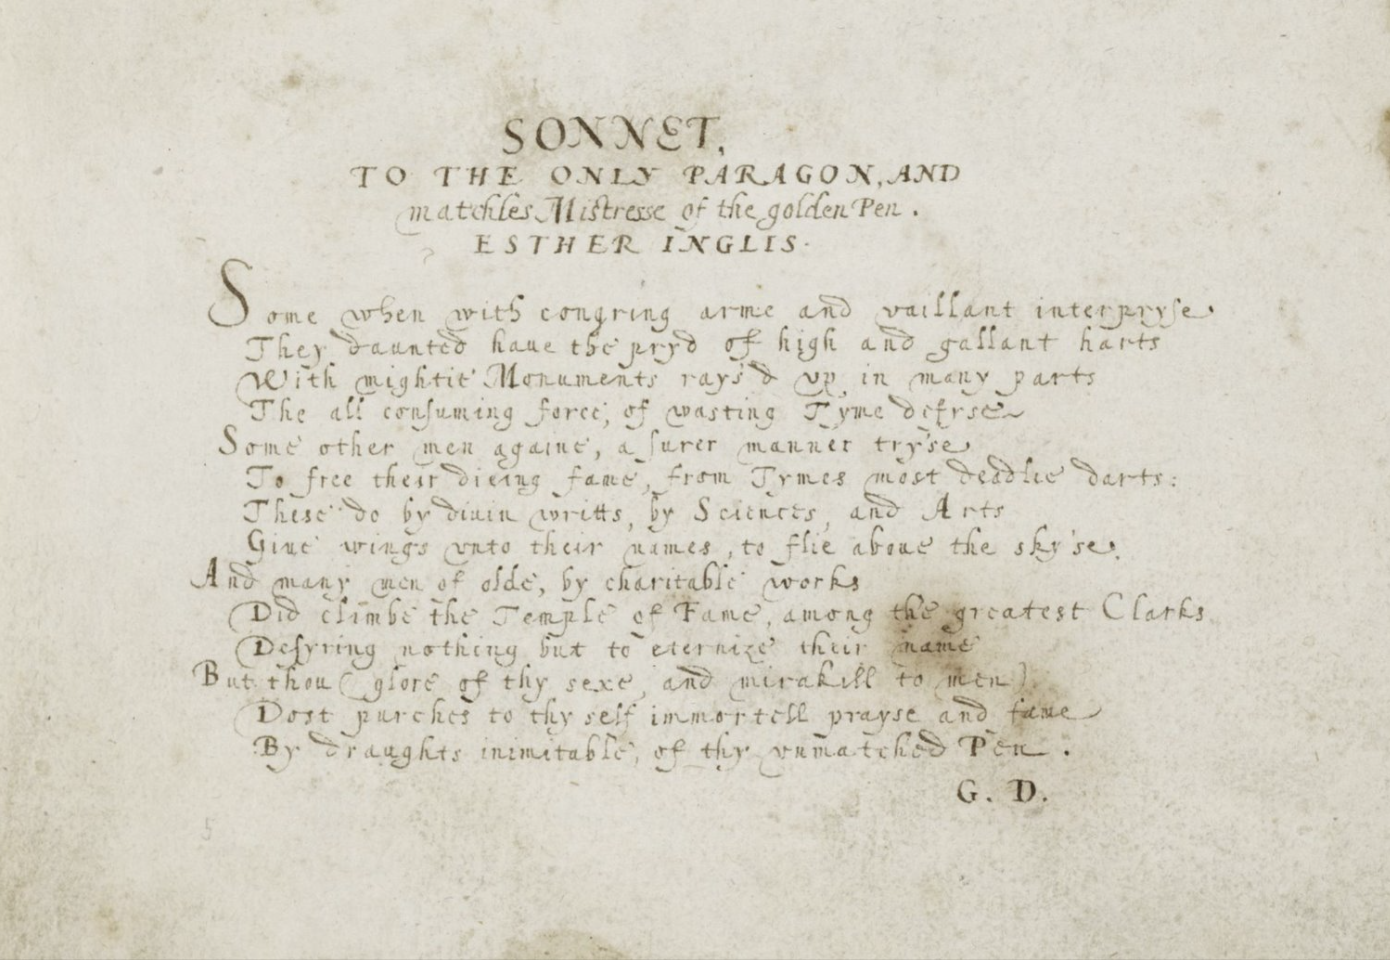 SONNET,
TO THE ONLY PARAGON, AND
matchles Mistresse of the golden Pen .
ESTHER INGLIS.
Some when with congring arme and vaillant interpryse
They daunted haue the pryd of high and gallant harts
With mightie Monuments rays'd vp in many parts
The all consuming force, of wasting Tyme
Some other men againe, a surer manner tryse
To free their dieing fame, from Tymes most deadlie darts:
These do by diuin writts, by Sciences, and Arts
Giue wings vnto their names, to flie aboue the sky'se.
And many men of olde, by charitable works
Did climbe the Temple of Fame, among the greatest Clarks
Desyring nothing but to eternize their name
But thou (glore of thy sexe, and mirakill to men)
Dost purches to thy self immortell prayse and fame
By draughts inimitable, of thy vnmatched Pen .
G. D.
5